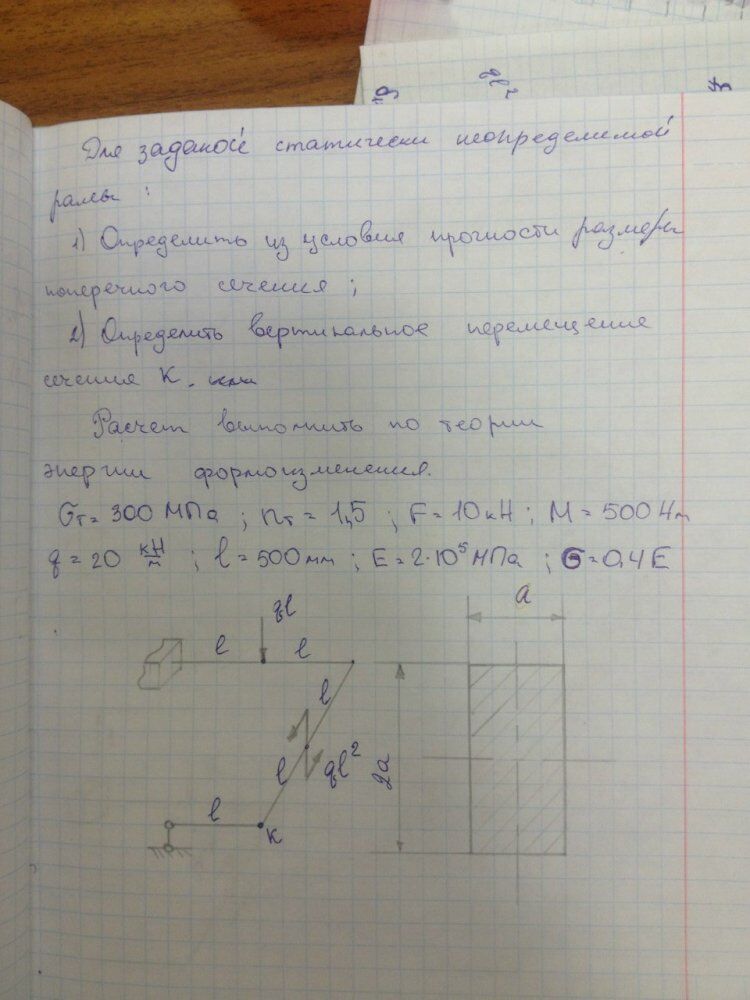 ql²
Для заданой статически неопределимой
рамы :
1) Определить из условия прочности размеры
поперечного сечения ;
2) Определить вертикальное перемещение
сечения К.
Расчет выполнить по теории
энергии формоизменения.
σт = 300 МПа ; nт = 1,5 ; F = 10 кН ; M = 500 Нм
q = 20 кН/м ; l = 500 мм ; E = 2·10⁵ МПа ; G = 0,4 E
ql
a
l
l
l
ql²
l
2a
l
К